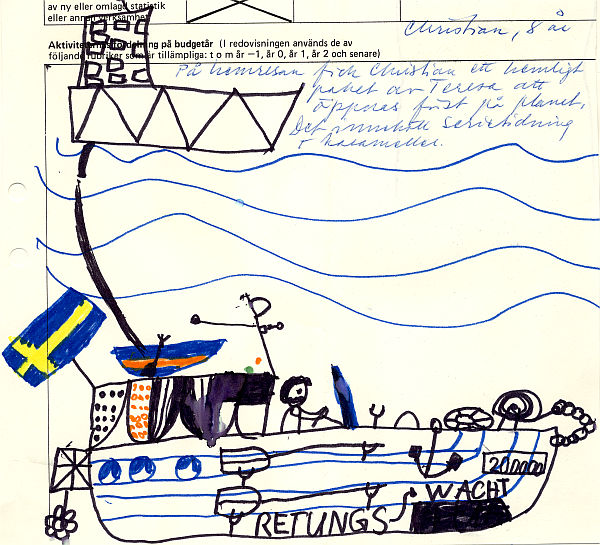 av ny eller omlagd statistik
eller annan verksamhet
Christian, 8 år
Aktivitetsfördelning på budgetår (I redovisningen används de av
följande rubriker som är tillämpliga: t o m år −1, år 0, år 1, år 2 och senare)
På hemresan fick Christian ett hemligt
paket av Teresa att
öppnas först på planet.
Det innehöll serietidning
+ karameller.
200000
WACHT
RETUNGS